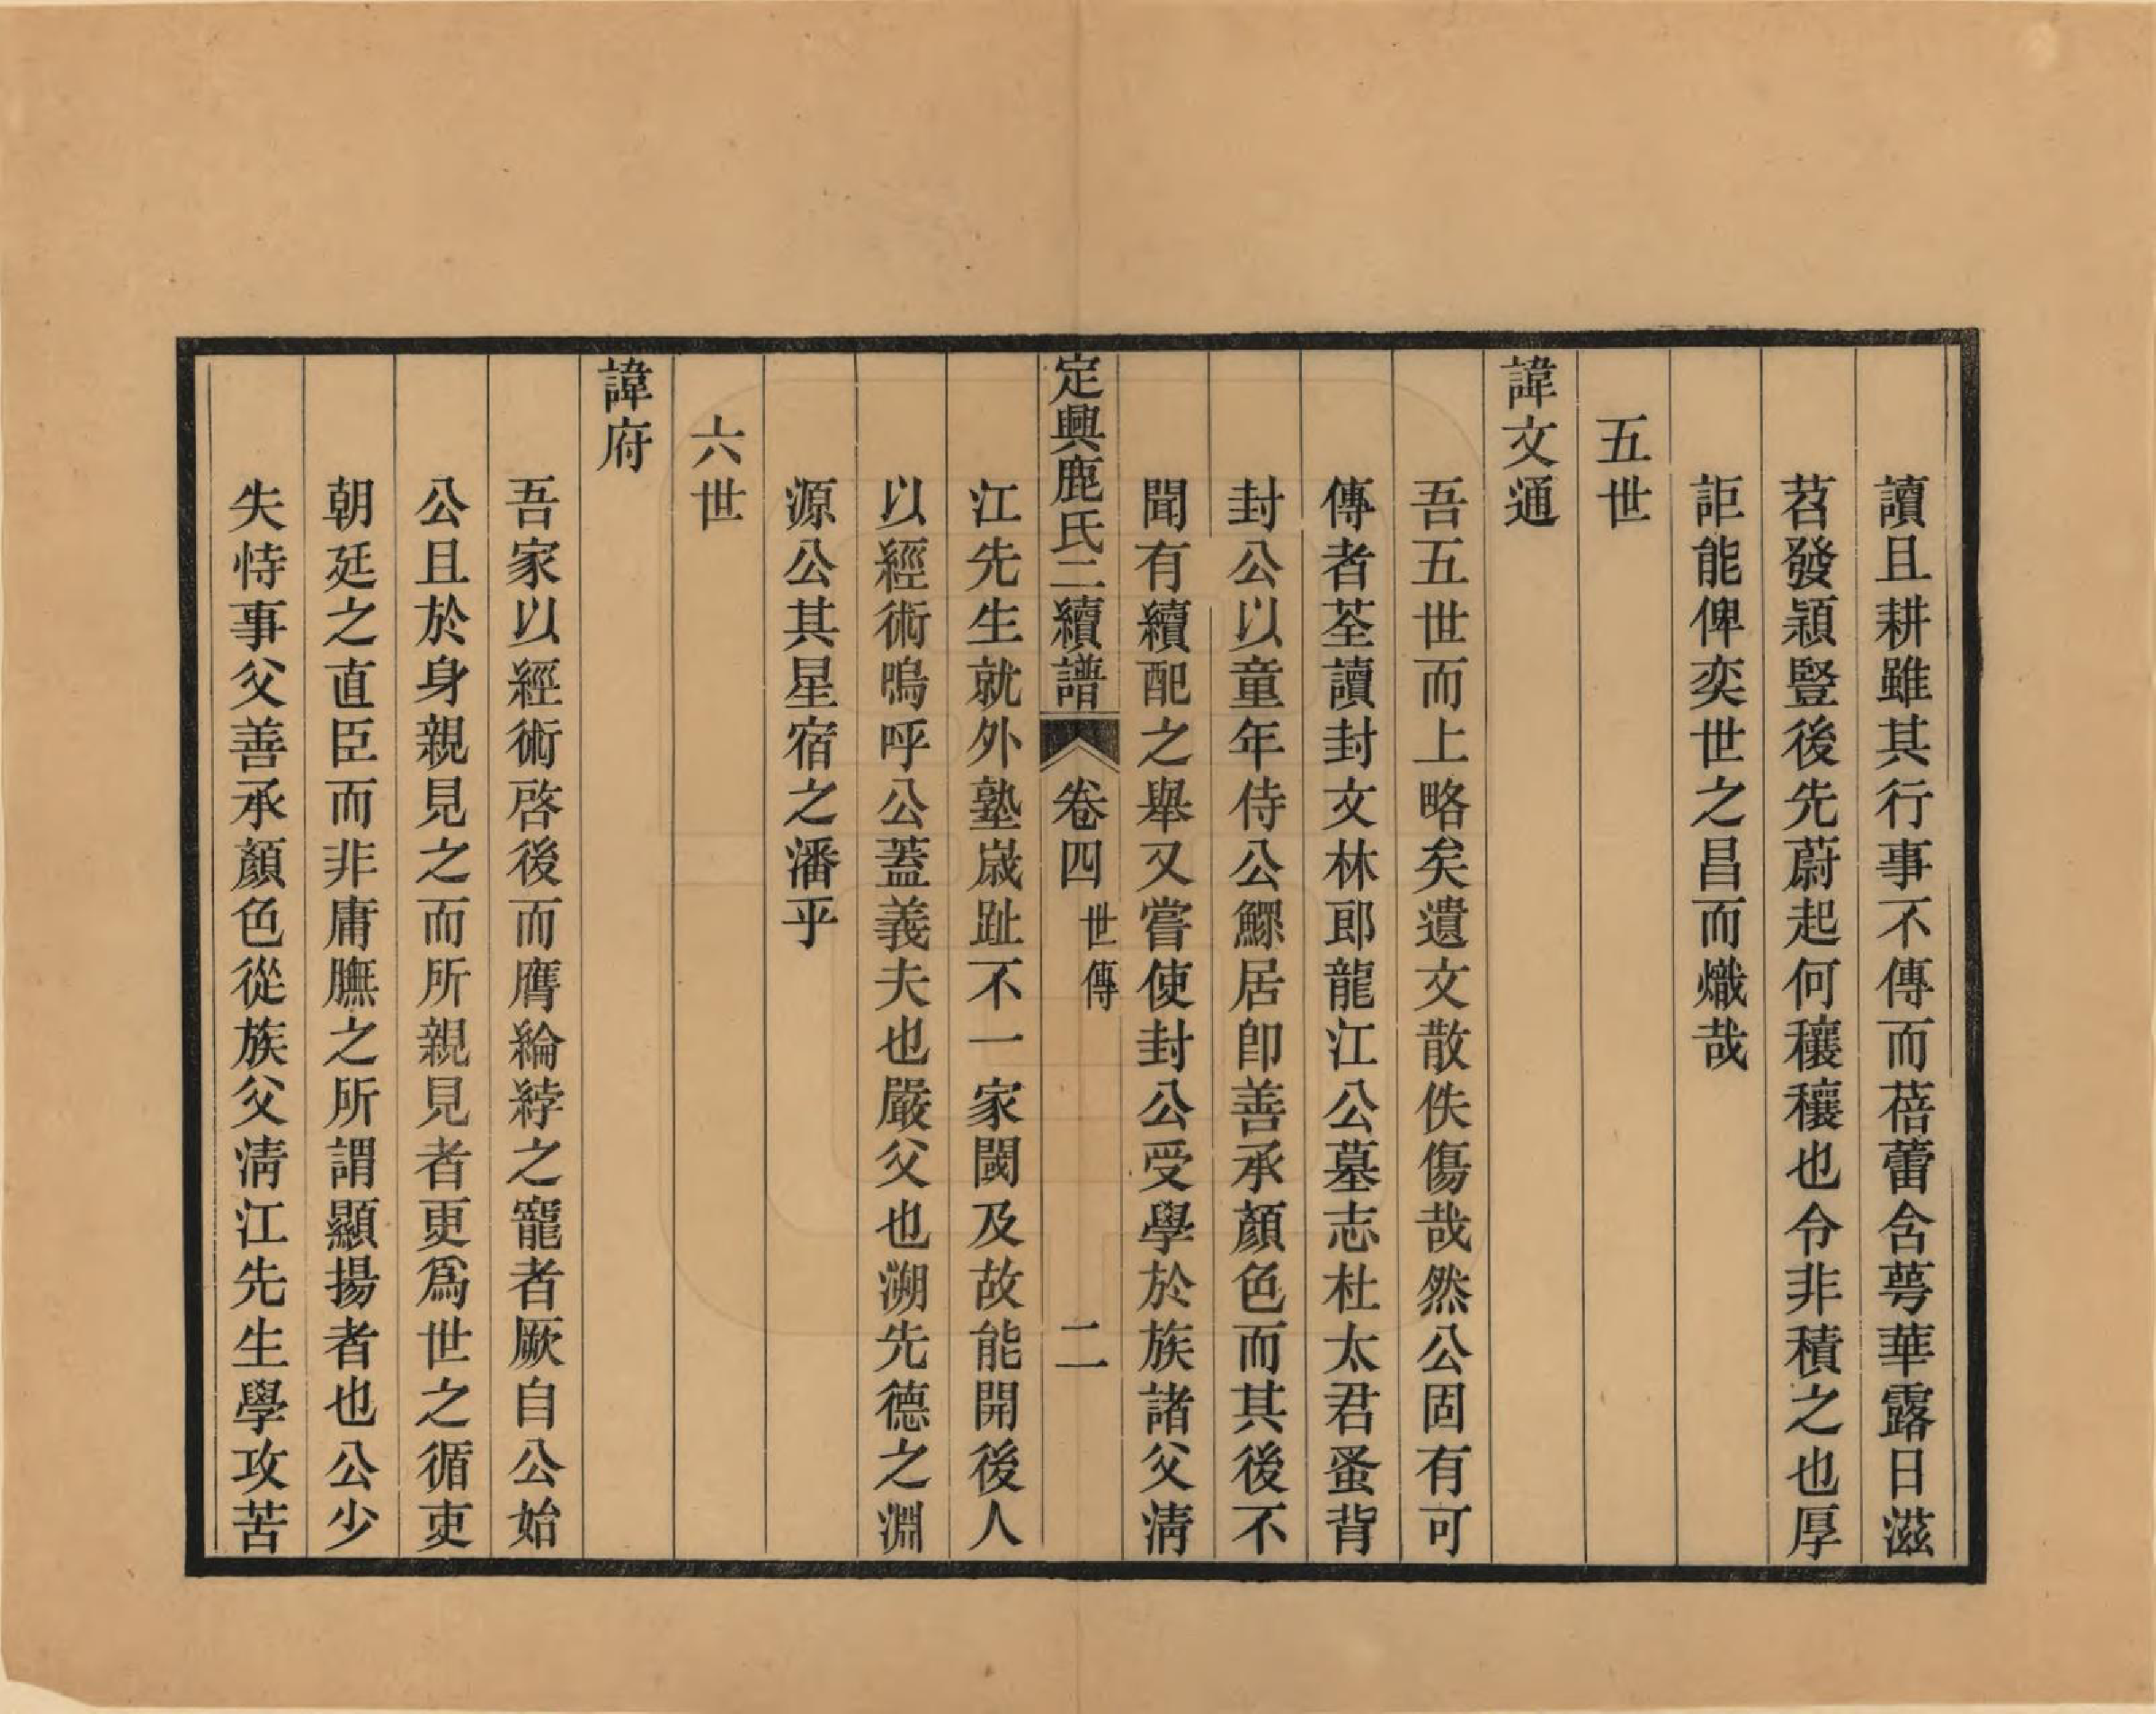 讀且耕雖其行事不傳而蓓蕾含萼華露日滋
苕發穎豎後先蔚起何穰穰也令非積之也厚
詎能俾奕世之昌而熾哉
五世
諱文通
吾五世而上略矣遺文散佚傷哉然公固有可
傳者荃讀封文林郎龍江公墓志杜太君蚤背
封公以童年侍公鰥居卽善承顏色而其後不
聞有續配之舉又嘗使封公受學於族諸父淸
定興鹿氏二續譜
卷四
世傳
二
江先生就外塾嵗趾不一家閾及故能開後人
以經術嗚呼公蓋義夫也嚴父也溯先德之淵
源公其星宿之潘乎
六世
諱府
吾家以經術啓後而膺綸綍之寵者厥自公始
公且於身親見之而所親見者更爲世之循吏
朝廷之直臣而非庸膴之所謂顯揚者也公少
失恃事父善承顏色從族父淸江先生學攻苦